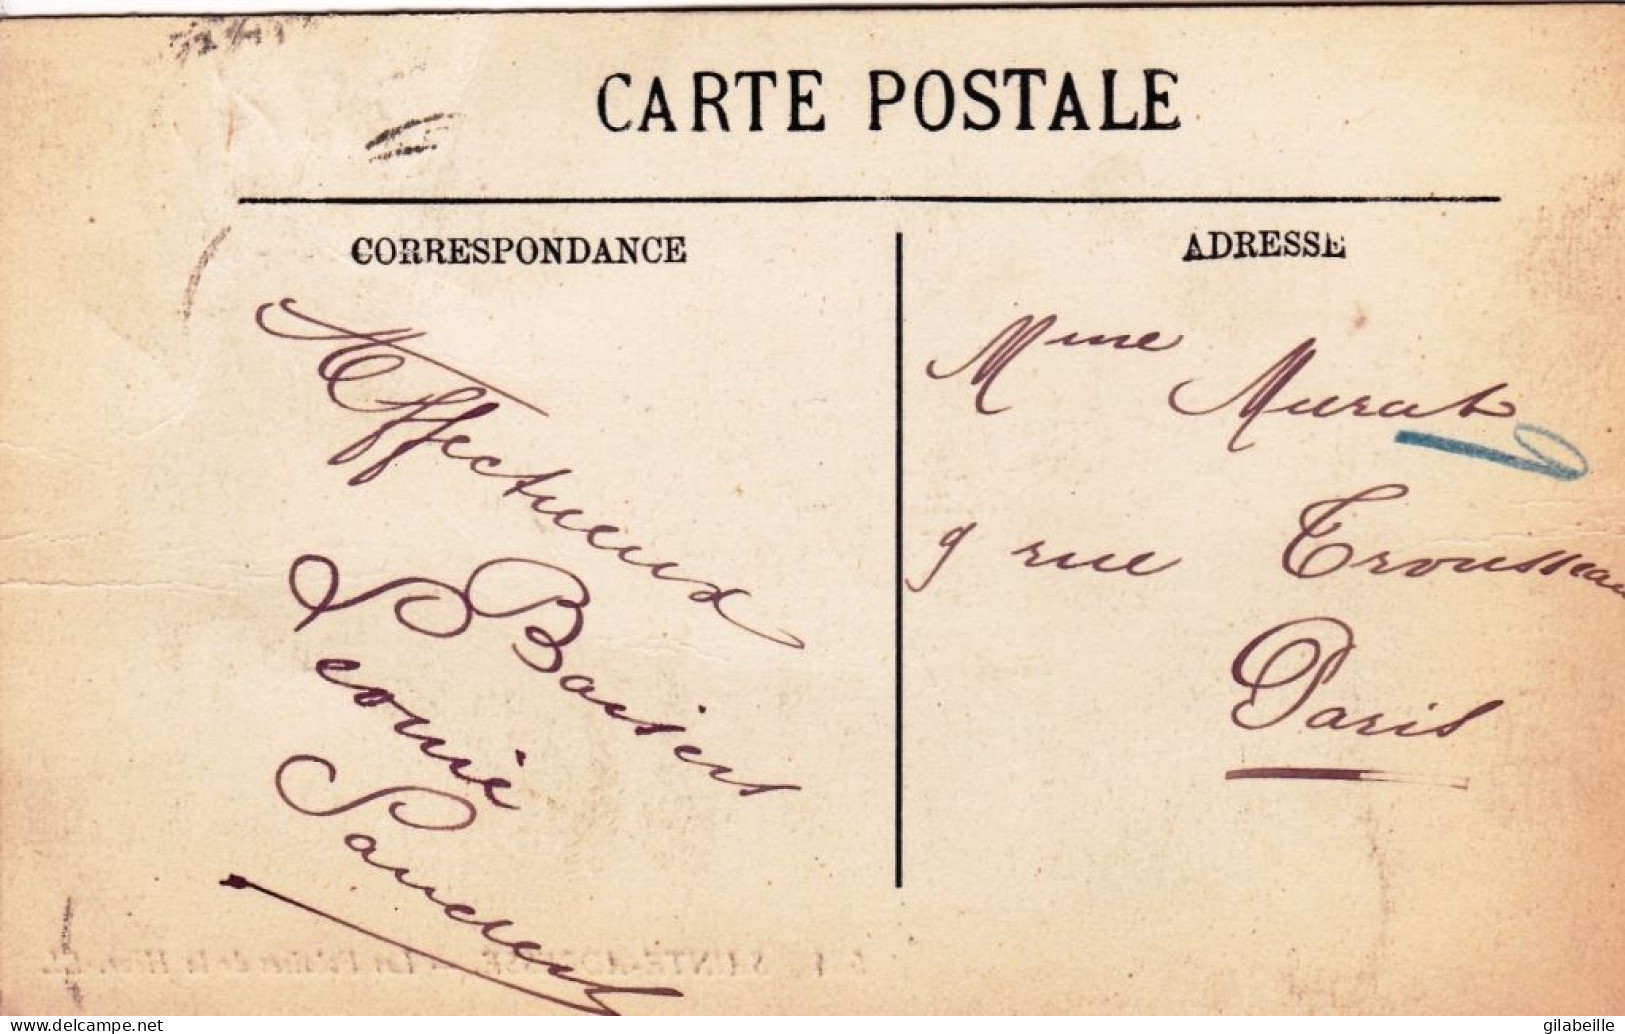 CARTE POSTALE
CORRESPONDANCE
Affectueux
Baisers
ADRESSE
Mme Murat
9 rue Trousseau
Paris
www.delcampe.net
gilabeille